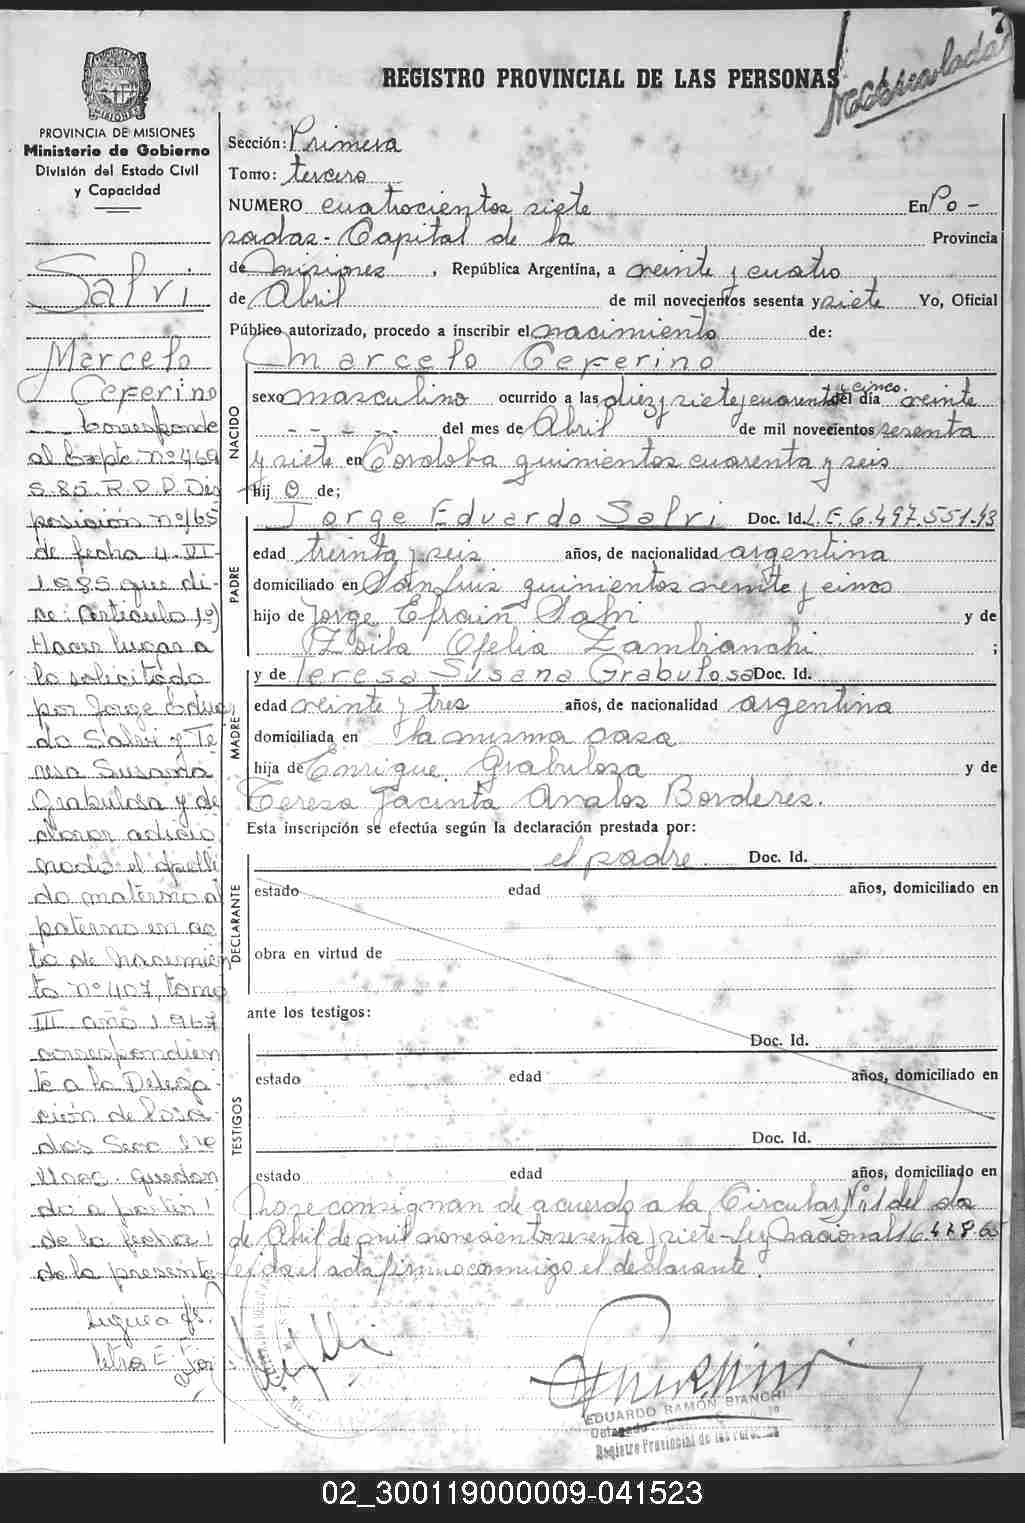 REGISTRO PROVINCIAL DE LAS PERSONAS
PROVINCIA DE MISIONES
Ministerio de Gobierno
División del Estado Civil
y Capacidad
Sección: Primera
Tomo: tercero
NUMERO cuatrocientos siete En Po-
sadas - Capital de la Provincia
de Misiones, República Argentina, a veinte y cuatro
de Abril de mil novecientos sesenta y siete Yo, Oficial
Público autorizado, procedo a inscribir el nacimiento de:
Marcelo Ceferino
NACIDO
sexo masculino ocurrido a las diez y siete y cuarenta y cinco del día veinte
del mes de Abril de mil novecientos sesenta
y siete en Cordoba quinientos cuarenta y seis
hijo de;
PADRE
Jorge Eduardo Salvi Doc. Id. L.E. 6.497.551.43
edad treinta y seis años, de nacionalidad argentina
domiciliado en San Luis quinientos veinte y cinco
hijo de Jorge Efrain Salvi y de
Zoila Ofelia Zambianchi ;
MADRE
y de Teresa Susana Grabulosa Doc. Id.
edad veinte y tres años, de nacionalidad argentina
domiciliada en la misma casa
hija de Enrique Grabulosa y de
Teresa Jacinta Avalos Borderes.
Esta inscripción se efectúa según la declaración prestada por:
DECLARANTE
el padre. Doc. Id.
estado edad años, domiciliado en
obra en virtud de
ante los testigos:
TESTIGOS
Doc. Id.
estado edad años, domiciliado en
Doc. Id.
estado edad años, domiciliado en
no se consignan de acuerdo a la Circular Nº 1 del dos
de Abril de mil novecientos sesenta y siete - Ley Nacional 16.478-65
Leida el acta firma conmigo el declarante.
EDUARDO RAMÓN BIANCHI
Delegado
Registro Provincial de las Personas
Salvi
Marcelo
Ceferino
Corresponde
al Expte nº 469
S. 85. R.P.P. Dis
posición nº 165
de fecha 4-VI-
1985 que di-
se: Artículo 1º)
Hacer lugar a
lo solicitado
por Jorge Edua
do Salvi y Te
resa Susana
Grabulosa y de
clarar adicio
nado el apelli
do materno al
paterno en ac
ta de nacimien
to nº 407, tomo
III año 1967
correspondien
te a la Delega
ción de Posa
das Secc 1ra
Mnes. Quedan
do a partir
de la fecha
de la presente
02_300119000009-041523